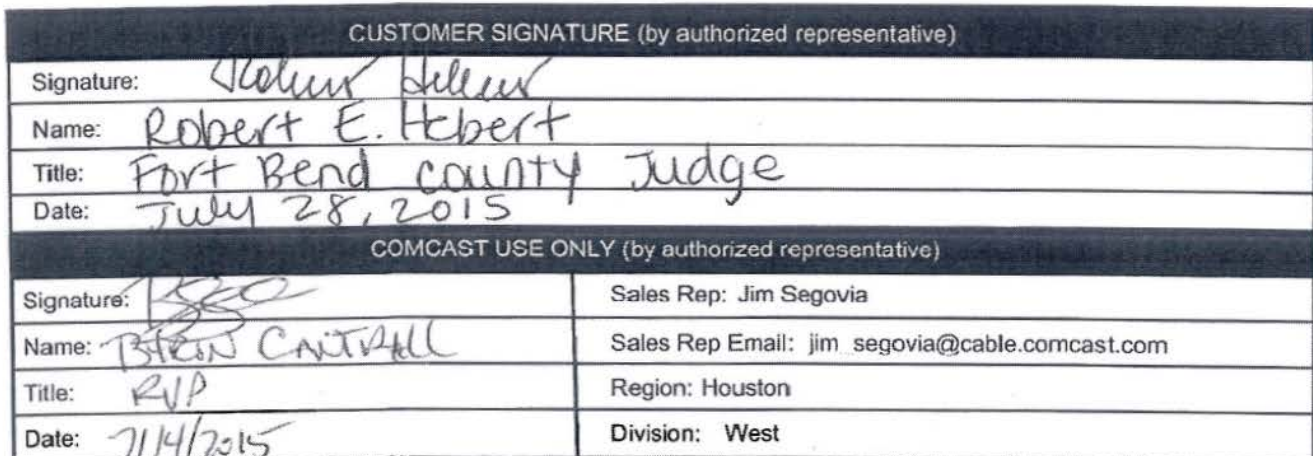 CUSTOMER SIGNATURE (by authorized representative)
Signature: Robert Hebert
Name: Robert E. Hebert
Title: Fort Bend county Judge
Date: July 28, 2015
COMCAST USE ONLY (by authorized representative)
Signature:
Sales Rep: Jim Segovia
Name: CANTRALL
Sales Rep Email: jim_segovia@cable.comcast.com
Title: RVP
Region: Houston
Date: 7/14/2015
Division: West